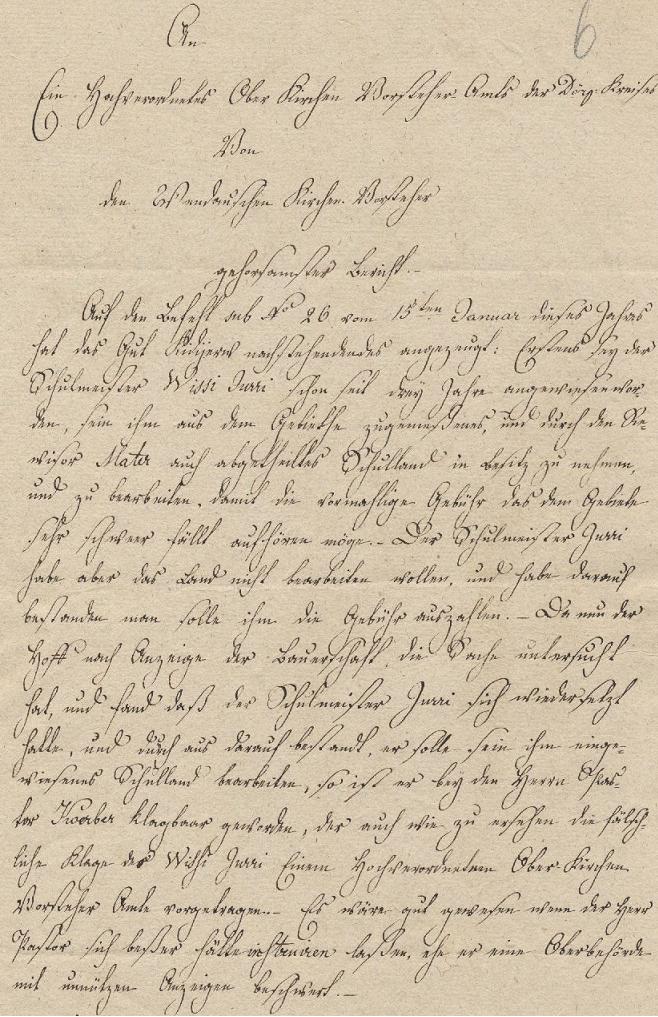 6
An
Ein Hochverordnetes Ober Kirchen Vorsteher-Amts der Dörp. Kreises
Von
den Wendauschen Kirchen-Vorsteher
gehorsamster Bericht.-
Auf den Befehl sub No 26 vom 15ten Januar dieses Jahres
hat das Gut nachstehendendes angezeugt: Erstens sey der
Schulmeister Wissi Jurri schon seit drey Jahre angewiesen wor-
den, sein ihm aus dem Gebiethe zugemeßenes, und durch den Re-
visor Mater auch abgetheiltes Schulland in Besitz zu nehmen,
und zu bearbeiten, damit die vormahlige Gebühr das dem Gebiete
sehr schwer fällt aufhören möge.- Der Schulmeister Jurri
habe aber das Land nicht bearbeiten wollen, und habe darauf
bestanden man solle ihm die Gebühr auszahlen.- Da nun der
Hoff nach Anzeige der Bauerschaft, die Sache untersucht
hat, und fand daß der Schulmeister Jurri sich wiedersetzt
hatte, und durch aus darauf bestandt, er solle sein ihm einge-
wiesenes Schulland bearbeiten, so ist er bey den Herrn Pas-
tor Koerber klagbaar geworden, der auch wie zu ersehen die fälsch-
liche Klage des Withi Jurri Einem Hochverordneten Ober-Kirchen
Vorsteher Amte vorgetragen.- Es wäre gut gewesen wenn der Herr
Pastor sich beßer hätte instruiren laßen, ehe er eine Oberbehörde
mit unnützen Anzeigen beschwert.-